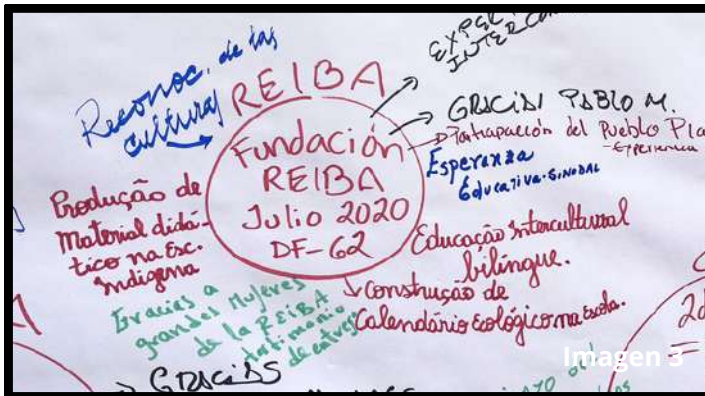 Reconoc. de las
culturas
REIBA
Fundación
REIBA
Julio 2020
DF-62
GRACIAS PABLO M.
Participación del Pueblo
-Experiencia
Esperanza
Educativa-SINODAL
Produção de
Material didá-
tico na Esc.
Indígena
Educação intercultural
bilingue.
construção de
Calendário Ecológico na Escola.
Gracias a
grandes Mujeres
de la REIBA
testimonio
de entrega
GRACIAS
2d
Imagen 3